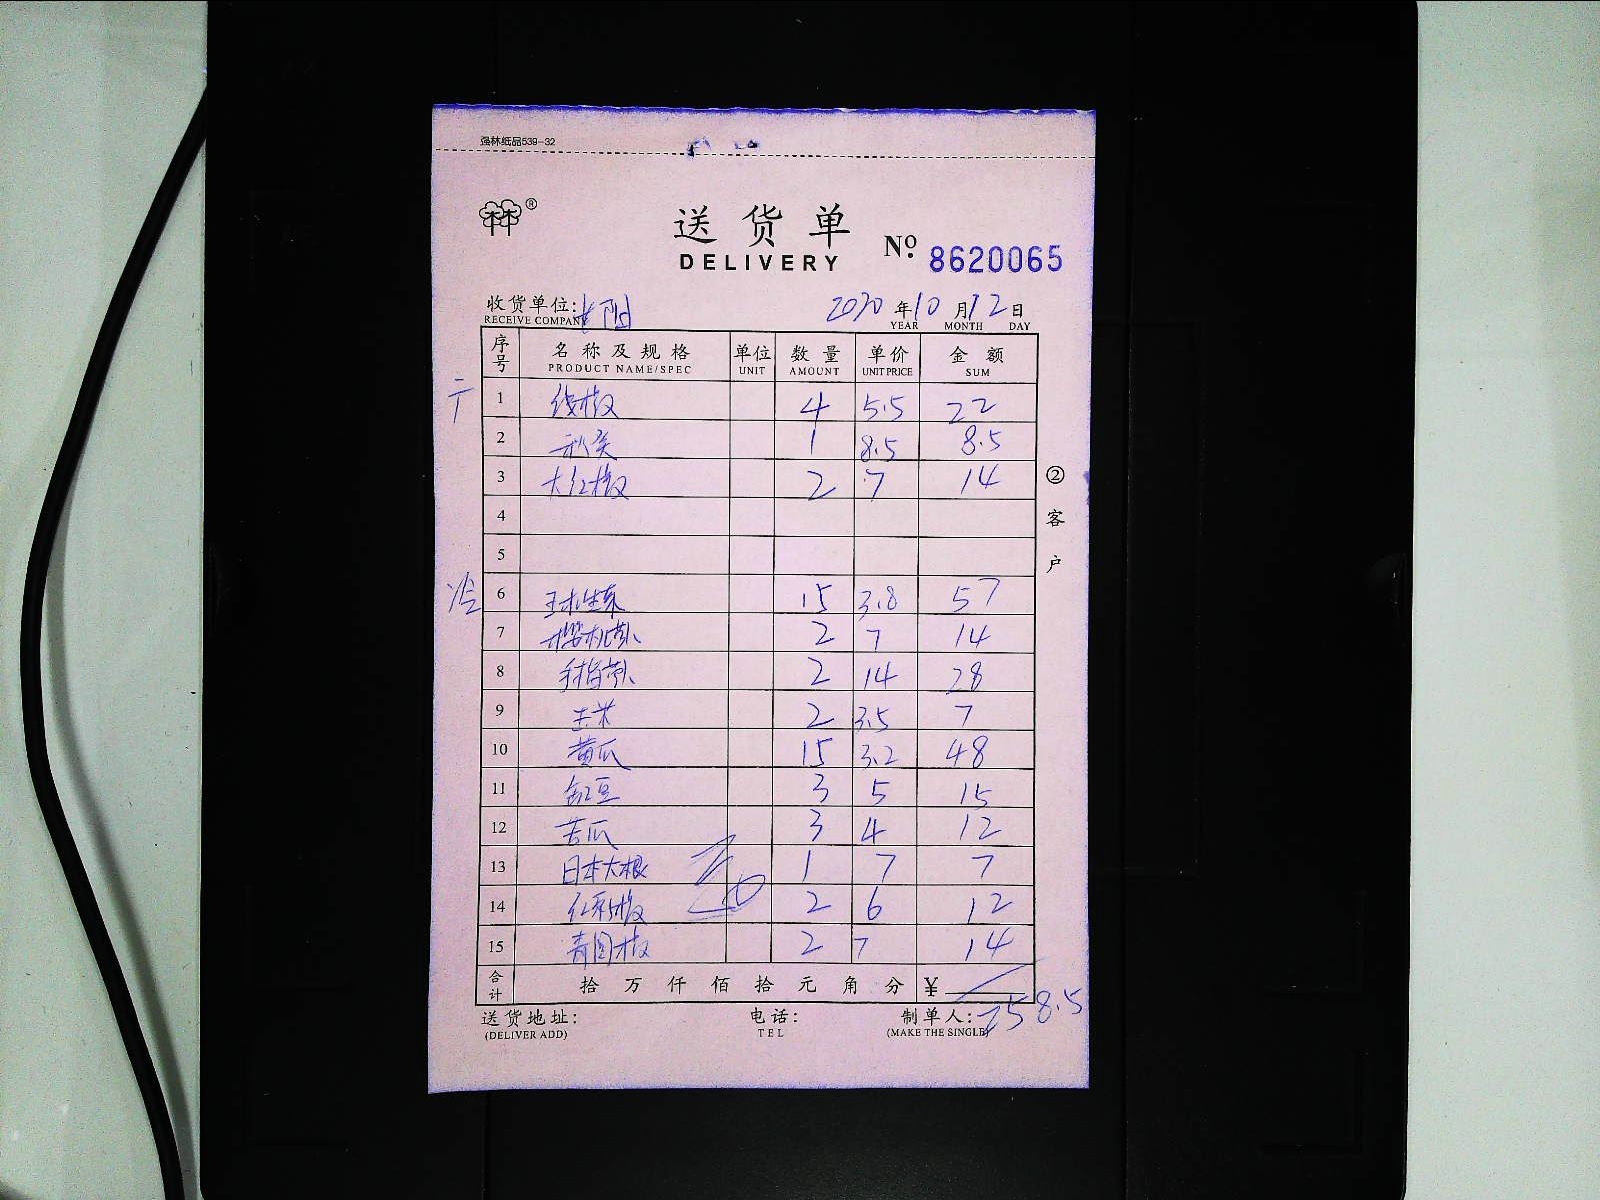 强林纸品539-32
林®
送货单
DELIVERY
№ 8620065
收货单位: 2020年10月12日
RECEIVE COMPANY YEAR MONTH DAY
序号 名称及规格 单位 数量 单价 金额
PRODUCT NAME/SPEC UNIT AMOUNT UNIT PRICE SUM
1 线椒 4 5.5 22
2 秋葵 1 8.5 8.5
3 大红椒 2 7 14
4
5
冷 6 球生菜 15 3.8 57
7 樱桃萝卜 2 7 14
8 手指萝卜 2 14 28
9 玉米 2 3.5 7
10 黄瓜 15 3.2 48
11 缸豆 3 5 15
12 苦瓜 3 4 12
13 日本大根 1 7 7
14 红彩椒 2 6 12
15 青圆椒 2 7 14
合计 拾万仟佰拾元角分 ¥
258.5
送货地址: 电话: 制单人:
(DELIVER ADD) TEL (MAKE THE SINGLE)
②客户